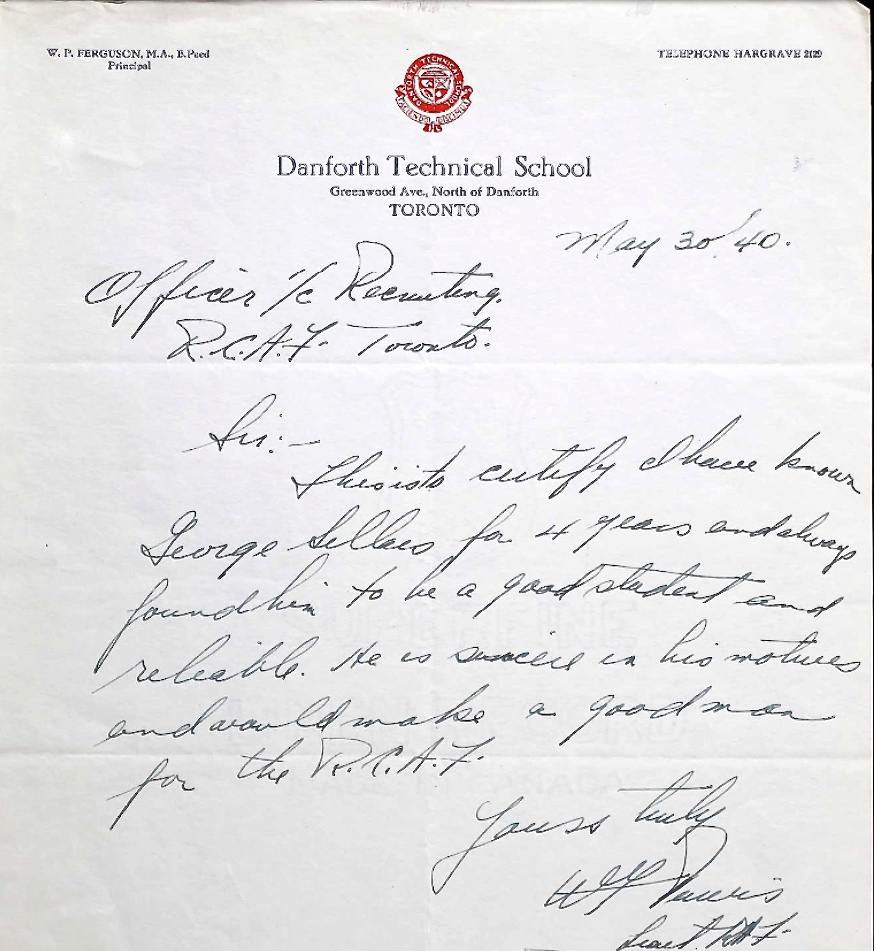 W. P. FERGUSON, M.A., B.Paed
Principal
TELEPHONE HARGRAVE 2129
DANFORTH TECHNICAL SCHOOL
Danforth Technical School
Greenwood Ave., North of Danforth
TORONTO
May 30 '40.
Officer i/c Recruiting.
R.C.A.F. Toronto.
Sir:-
This is to certify I have known
George Sellers for 4 years and always
found him to be a good student and
reliable. He is sincere in his motives
and would make a good man
for the R.C.A.F.
Yours truly